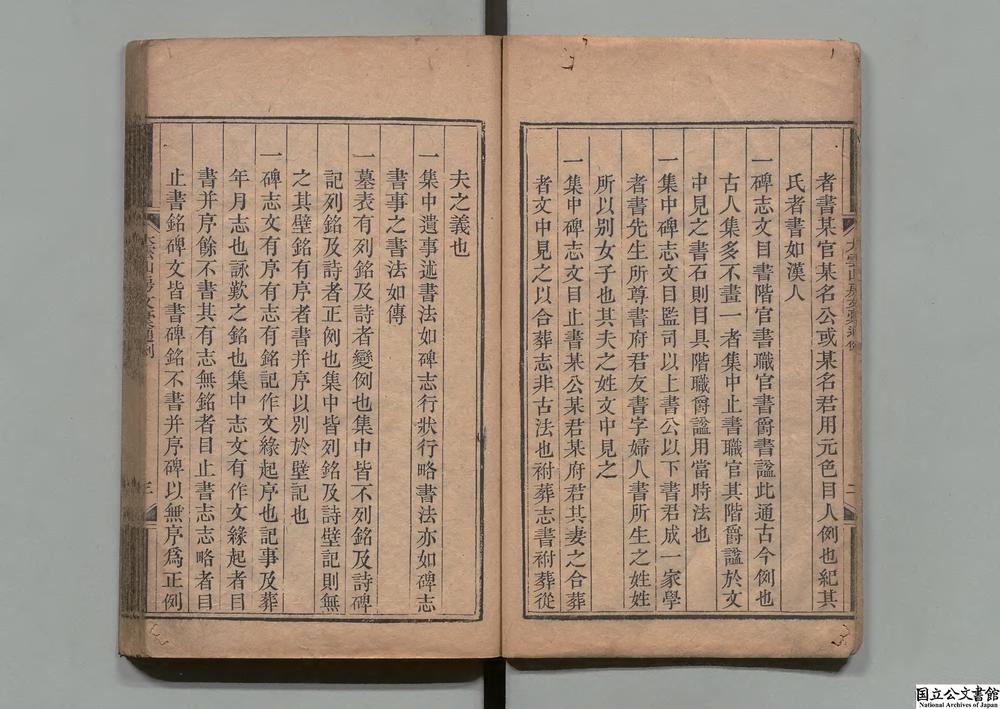 者書某官某名公或某名君用元色目人例也紀其
氏者書如漢人
一碑志文目書階官書職官書爵書諡此通古今例也
古人集多不畫一者集中止書職官其階爵諡於文
中見之書石則目具階職爵諡用當時法也
一集中碑志文目監司以上書公以下書君成一家學
者書先生所尊書府君友書字婦人書所生之姓姓
所以別女子也其夫之姓文中見之
一集中碑志文目止書某公某君某府君其妻之合葬
者文中見之以合葬志非古法也祔葬志書祔葬從
二
夫之義也
一集中遺事述書法如碑志行狀行略書法亦如碑志
書事之書法如傳
一墓表有列銘及詩者變例也集中皆不列銘及詩碑
記列銘及詩者正例也集中皆列銘及詩壁記則無
之其壁銘有序者書并序以別於壁記也
一碑志文有序有志有銘記作文緣起序也記事及葬
年月志也詠歎之銘也集中志文有作文緣起者目
書并序餘不書其有志無銘者目止書志志略者目
止書銘碑文皆書碑銘不書并序碑以無序爲正例
三
国立公文書館
National Archives of Japan